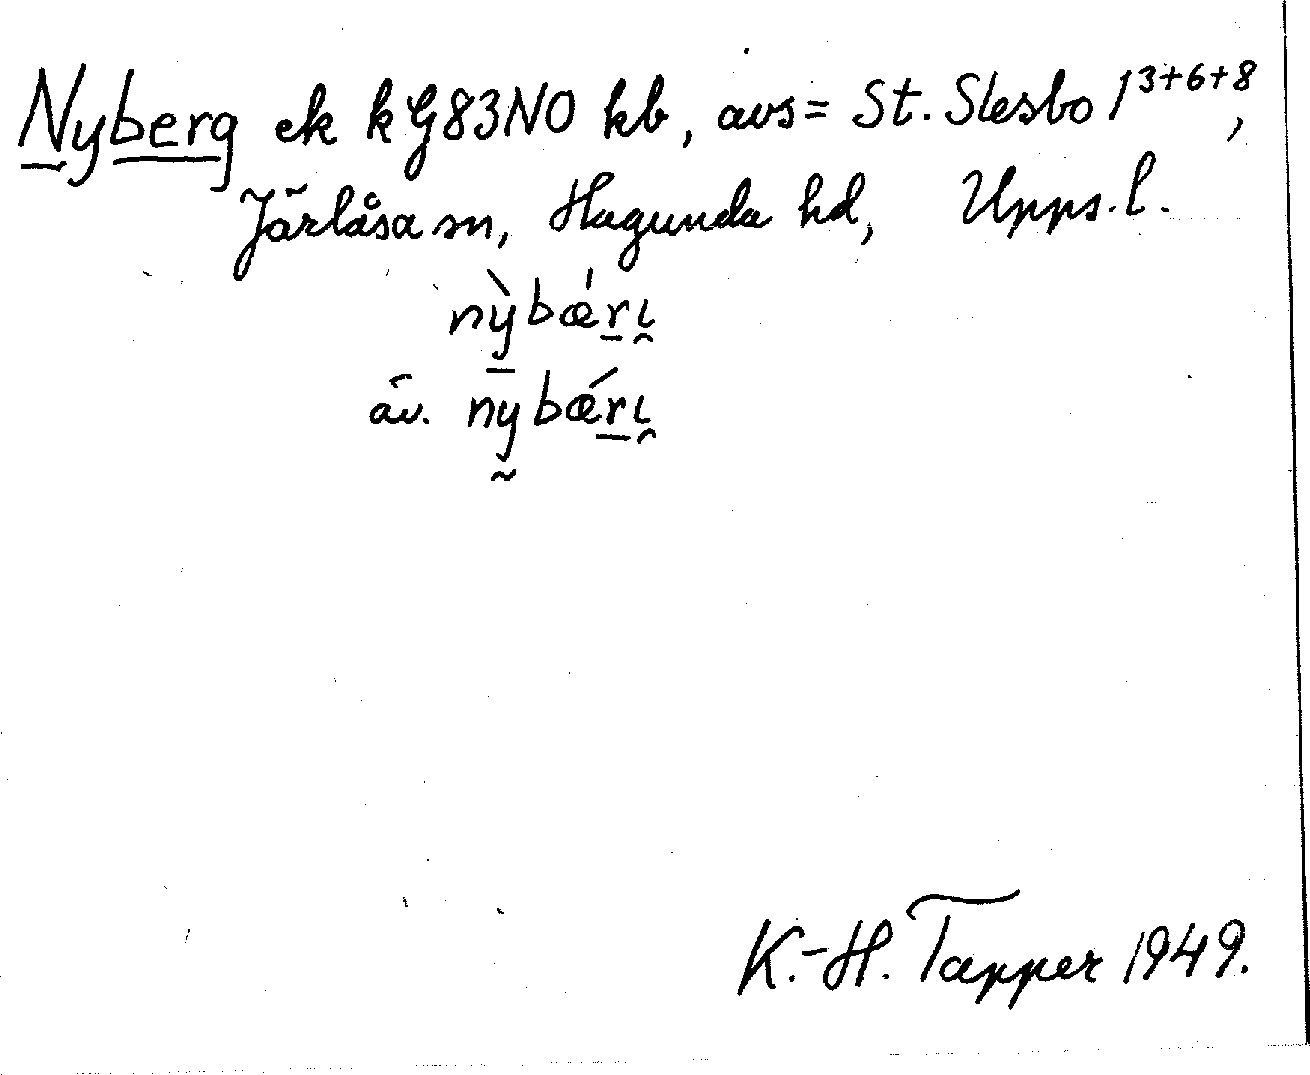 Nyberg ek k G83NO kb, avs = St. Slesbo 1³⁺⁶⁺⁸,
Järlåsa sn, Hagunda hd, Upps. l.
nỳ̱bǽṟɩ̯
äv. ny̰bǽṟɩ̯
K.-H. Tapper 1949.